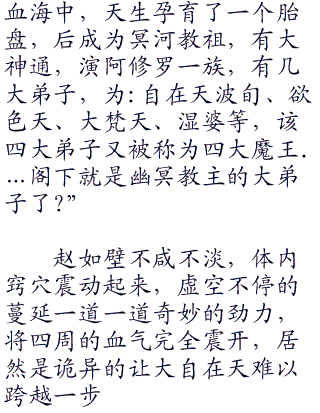 血海中，天生孕育了一个胎
盘，后成为冥河教祖，有大
神通，演阿修罗一族，有几
大弟子，为:自在天波旬、欲
色天、大梵天、湿婆等，该
四大弟子又被称为四大魔王.
...阁下就是幽冥教主的大弟
子了?”
赵如壁不咸不淡，体内
窍穴震动起来，虚空不停的
蔓延一道一道奇妙的劲力，
将四周的血气完全震开，居
然是诡异的让大自在天难以
跨越一步